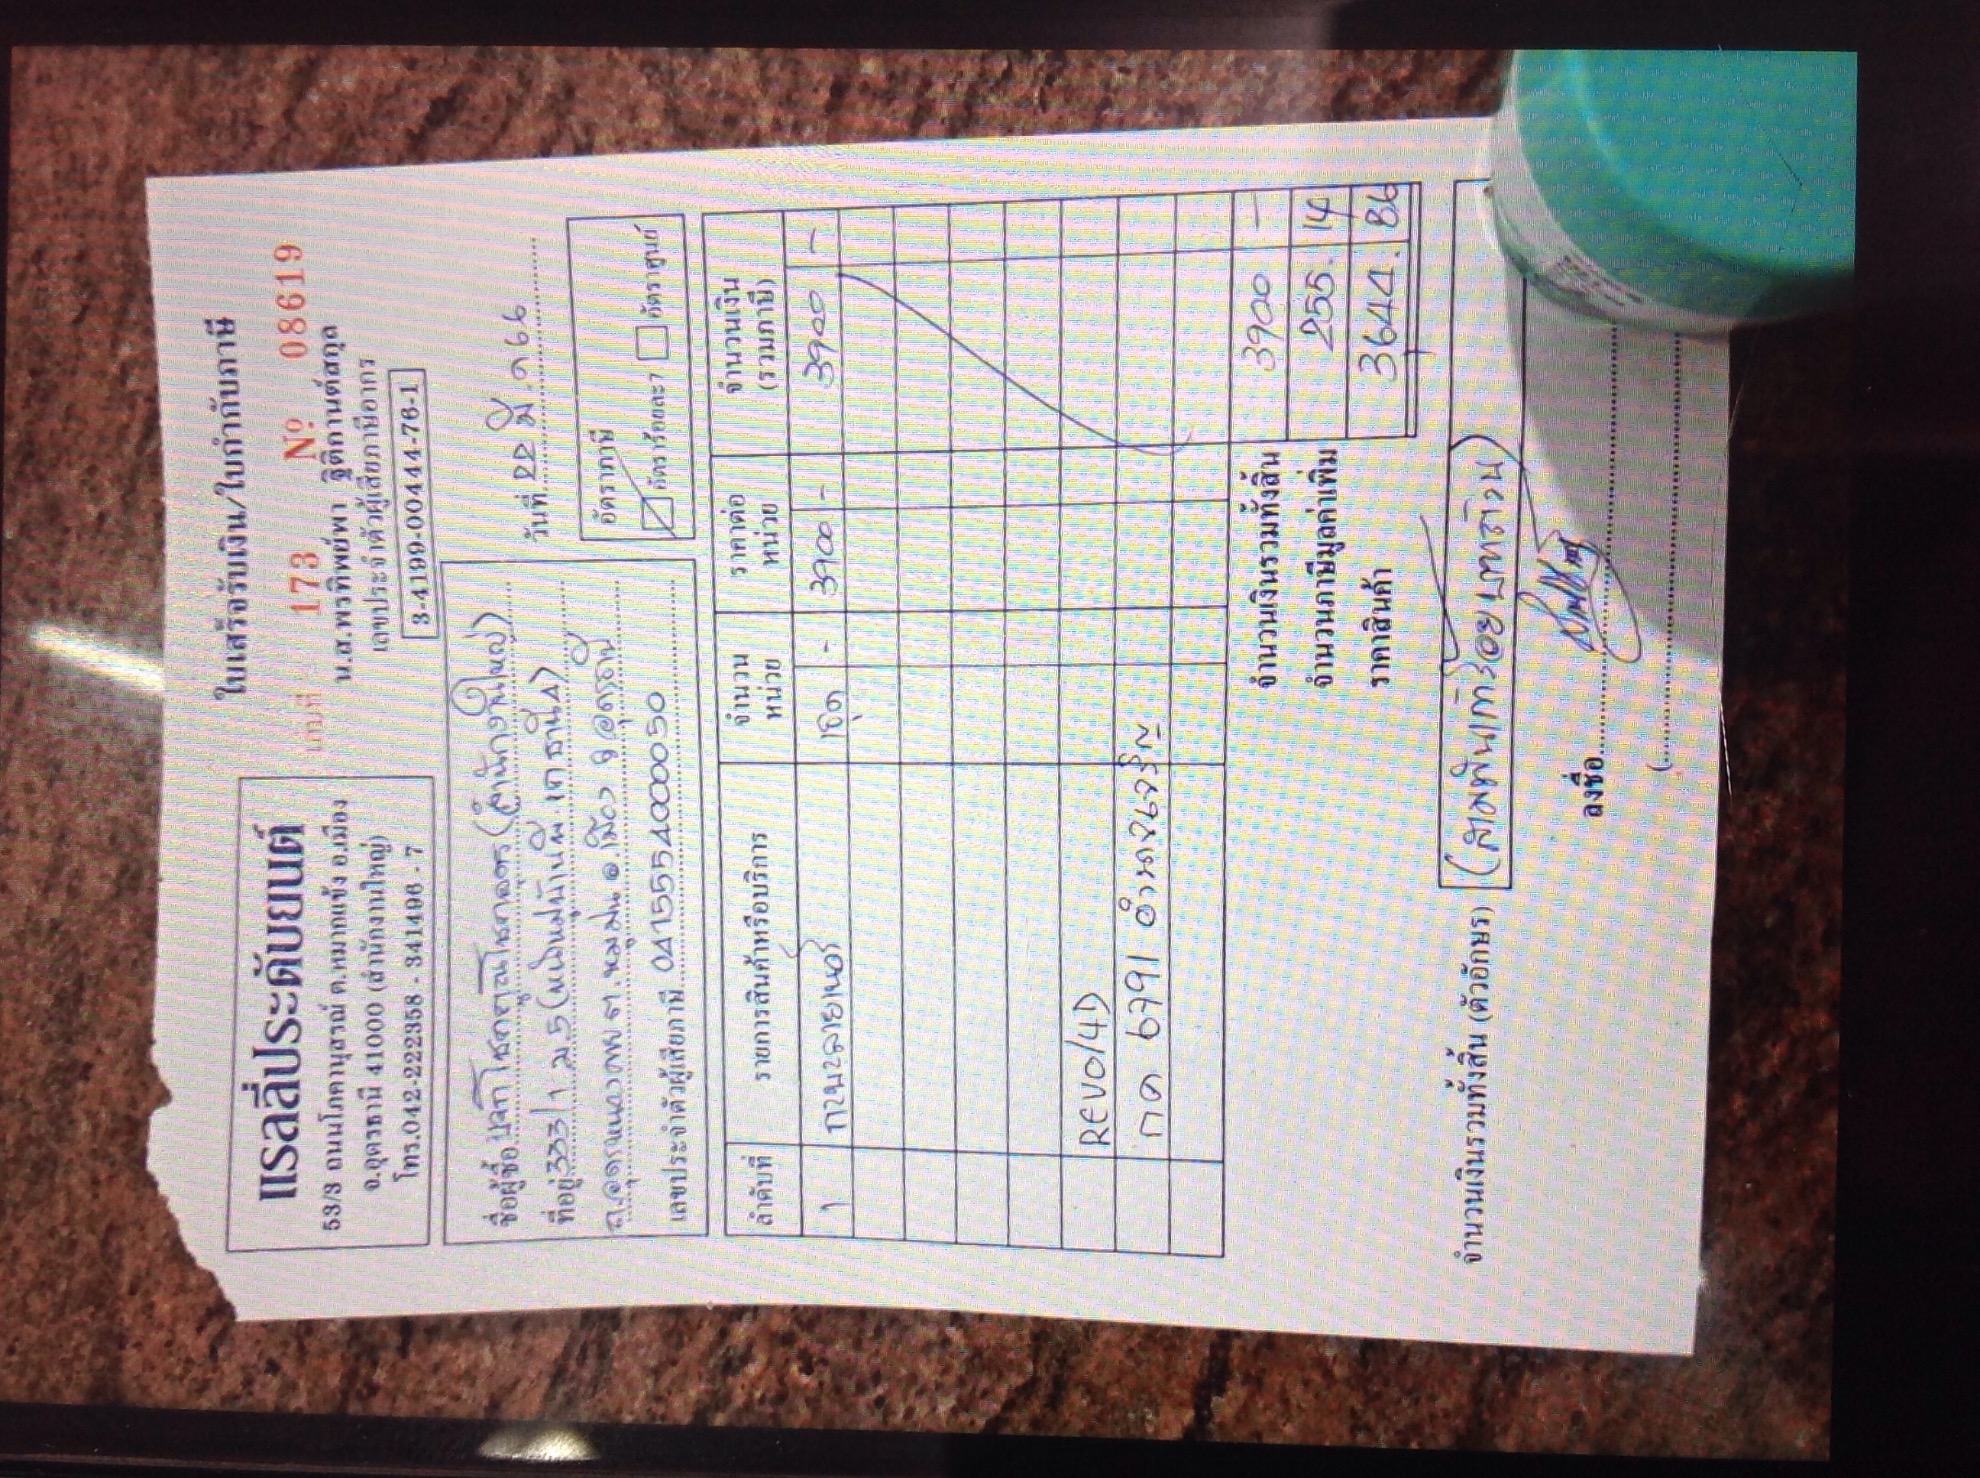 แรลลี่ประดับยนต์
53/3 ถนนโภคานุสรณ์ ต.หมากแข้ง อ.เมือง
จ.อุดรธานี 41000 (สำนักงานใหญ่)
โทร.042-222358 - 341496 - 7
ใบเสร็จรับเงิน/ใบกำกับภาษี
เล่มที่ 173 Nº 08619
น.ส.พรทิพย์พา ฐิติกานต์สกุล
เลขประจำตัวผู้เสียภาษีอากร
3-4199-00444-76-1
วันที่ 22 มี.ค 66
ชื่อผู้ซื้อ (สำนักงานใหญ่)
ที่อยู่ 333/1 ม.5
อ.เมือง จ.อุดรธานี
เลขประจำตัวผู้เสียภาษี 0415554000050
อัตราภาษี
อัตราร้อยละ 7 อัตราศูนย์
ลำดับที่ รายการสินค้าหรือบริการ จำนวนหน่วย ราคาต่อหน่วย จำนวนเงิน (รวมภาษี)
1 1ชุด - 3900 - 3900 -
REVO/4D
6791 อำนาจเจริญ
จำนวนเงินรวมทั้งสิ้น 3900 -
จำนวนภาษีมูลค่าเพิ่ม 255. 14
ราคาสินค้า 3644. 86
จำนวนเงินรวมทั้งสิ้น (ตัวอักษร) (สามพันเก้าร้อยบาทถ้วน)
ลงชื่อ